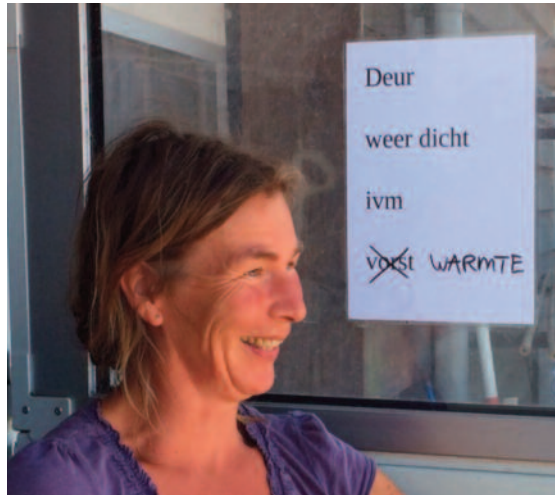 Deur
weer dicht
ivm
vorst WARMTE